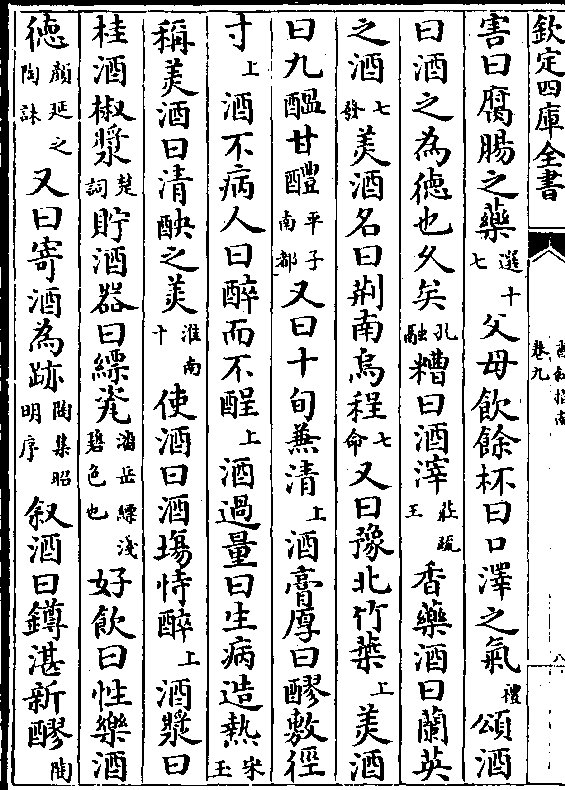 欽定四庫全書
卷九
八
害曰腐腸之藥選十七父母飲餘杯曰口澤之氣禮頌酒
曰酒之為徳也乆矣孔融糟曰酒滓莊疏王香藥酒曰蘭英
之酒七發美酒名曰荆南烏程七命又曰豫北竹葉上美酒
曰九醖甘醴平子南都又曰十旬兼清上酒膏厚曰醪敷徑
寸上酒不病人曰醉而不酲上酒過量曰生病造熱宋玉
稱美酒曰清醠之美淮南十使酒曰酒塲恃醉上酒漿曰
桂酒椒漿楚詞貯酒器曰縹瓷潘岳縹淺碧色也好飲曰性樂酒
徳顔延之陶誄又曰寄酒為跡陶集昭明序叙酒曰罇湛新醪陶